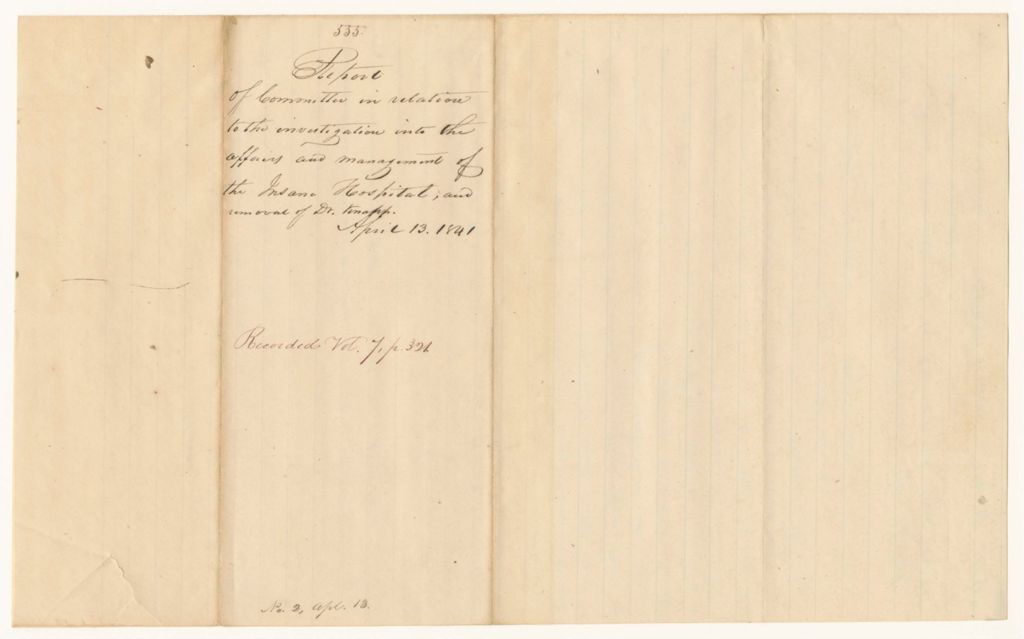 535.
Report
of Committee in relation
to the investigation into the
affairs and management of
the Insane Hospital; and
removal of Dr. Knapp.
April 13. 1841
Recorded Vol. 7, p. 321
No. 2, Apl. 13.